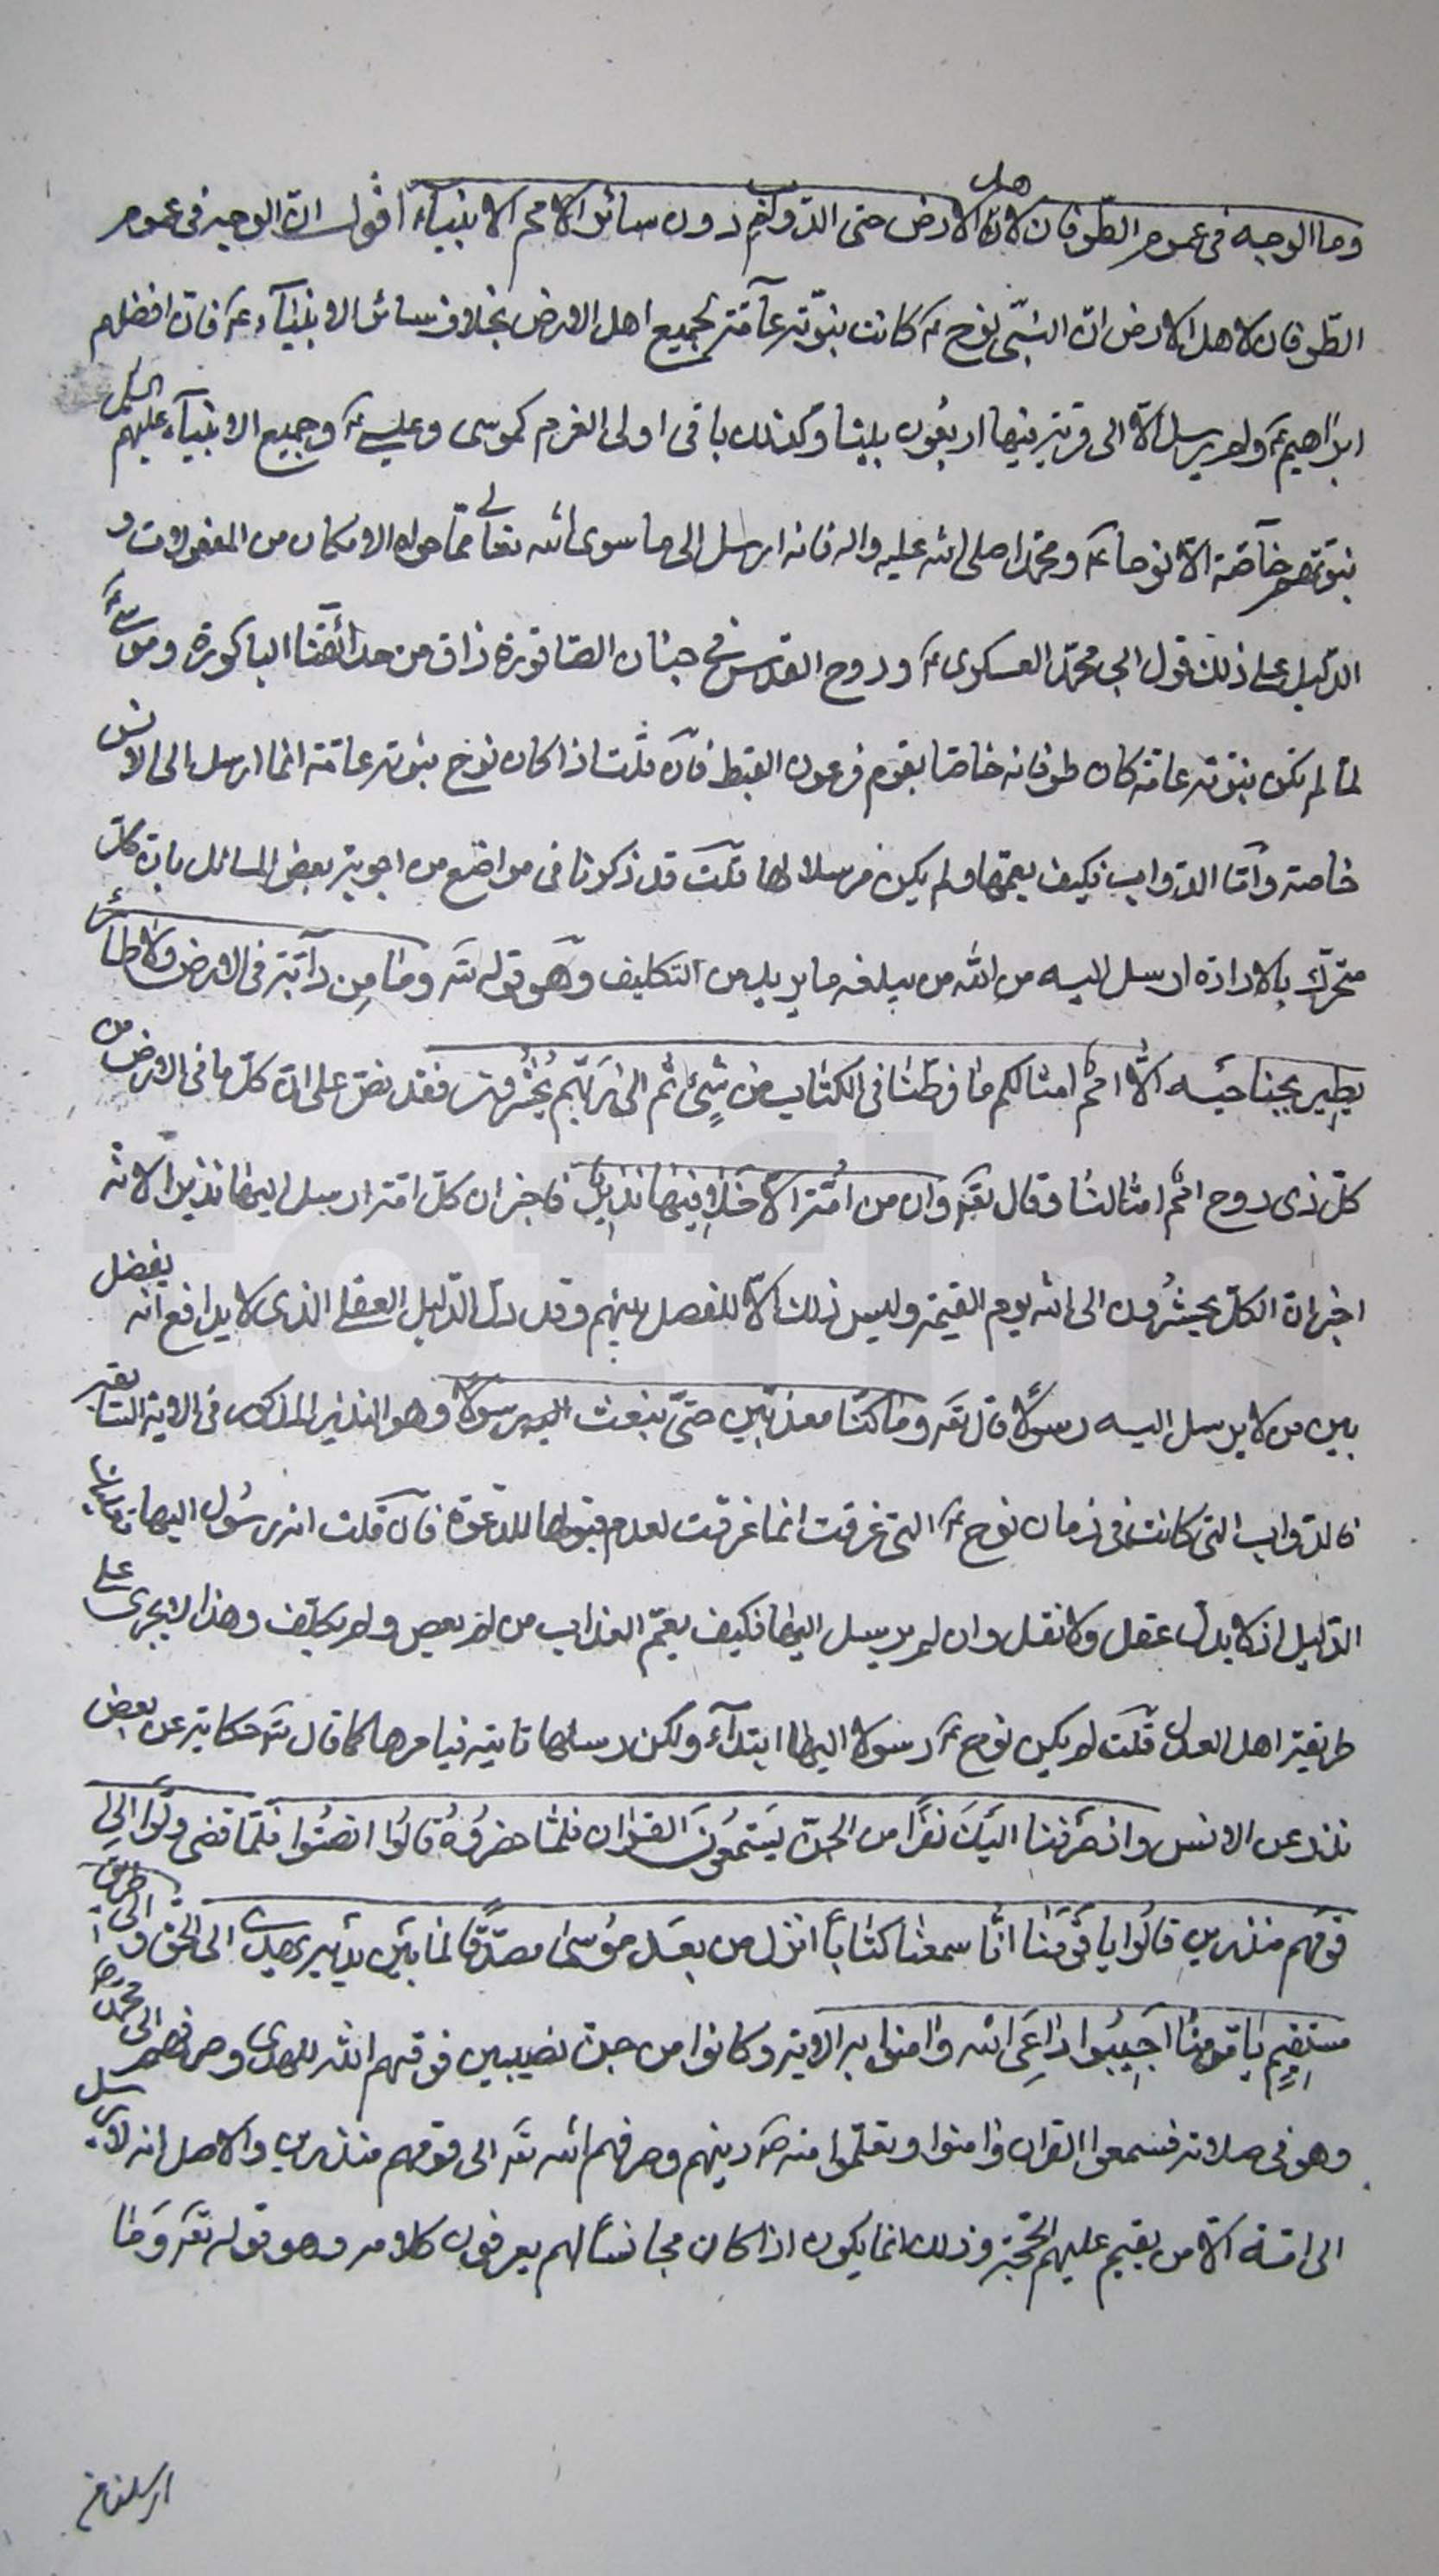 وما الوجه فى عموم الطوفان لاهل الارض حتى الدواب دون سائر الامم الانبياء اقول ان الوجه فى عموم
الطوفان لاهل الارض ان النبى نوح ع كانت نبوته عآمّة لجميع اهل الارض بخلاف سائر الانبيآء ع فان افضلهم
ابراهيم ع ولم يرسل الّا الى قرية فيها اربعون بيتا وكذلك باقى اولى العزم كموسى وعيسى ع وجميع الانبيآء عليهم السلم
نبوتهم خآصّة الّا نوحا ع ومحمدا صلى الله عليه واله فانه ارسل الى ما سوى الله تعالى ممّا حواه الامكان من المفعولات و
الدليل على ذلك قول ابى محمّد العسكرى ع وروح القدس فى جنان الصاقورة ذاق من حدائقنا الباكورة وموسى ع
لمّا لم تكن نبوته عامّة كان طوفانه خاصّا بقوم فرعون القبط فان قلت اذا كان نوح نبوته عامّة انما ارسل الى الانس
خاصة وامّا الدواب فكيف يعمّها ولم يكن مرسلا لها قلت قد ذكرنا فى مواضع من اجوبة بعض المسائل بان كل
متحرّك بالارادة ارسل اليه من الله من يبلغه ما يريد من التكليف وهو قوله تع وما من دآبّة فى الارض ولا طائر
يطير بجناحيه الّا امم امثالكم ما فرطنا فى الكتاب من شئ ثم الى ربّهم يُحْشرون فقد نصّ على ان كلّ ما فى الارض من
كلّ ذى روح امم امثالنا وقال تع وان من امّة الّا خلا فيها نذير فاخبر ان كلّ امّة ارسل اليها نذير الا انه
اخبر ان الكل يحشرون الى الله يوم القيمة وليس ذلك الّا للفصل بينهم وقد دلّ الدليل العقلى الذى لا يدافع انه يفصل
بين من لا يرسل اليه رسولا قال تع وما كنّا معذبين حتّى نبعث اليهم رسولا وهو النذير المذكور فى الاية السابقة
فالدواب التى كانت فى زمان نوح ع التى غرقت انما غرقت لعدم قبولها للدعوة فان قلت انه رسول اليها
الدليل اذ لا يدل عقل ولا نقل وان لم يرسل اليها فكيف يعمّ العذاب من لم يعص ولم يكلّف وهذا لا يجرى على
طريقة اهل العدل قلت لم يكن نوح ع رسولا اليها ابتدآء ولكن رسلها تاتيه فيامرها كما قال تع حكاية عن بعض
نذر عن الانس واذ صرفنا اليك نفرًا من الجنّ يستمعون القرٰان فلمّا حضروه قالوا انصتوا فلمّا قضى ولّوا الى
قومهم منذرين قالوا يا قومنا انّا سمعنا كتاباً انزل من بعد موسى مصدّقًا لما بين يديه يهدى الى الحق والى طريق
مستقيم يا قومنا اجيبوا داعى الله وٰامنوا به الاية وكانوا من جنّ نصيبين فوفقهم الله للهدى وصرفهم الى محمد ص
وهو فى صلاته فسمعوا القران وٰامنوا وتعلّموا منه ص دينهم وصرفهم الله تع الى قومهم منذرين والاصل انه لا يرسل
الى امّة الّا من يقيم عليهم الحجّة وذلك انما يكون اذا كان مجانسًا لهم يعرفون كلامه وهو قوله تع وما
ارسلنا من